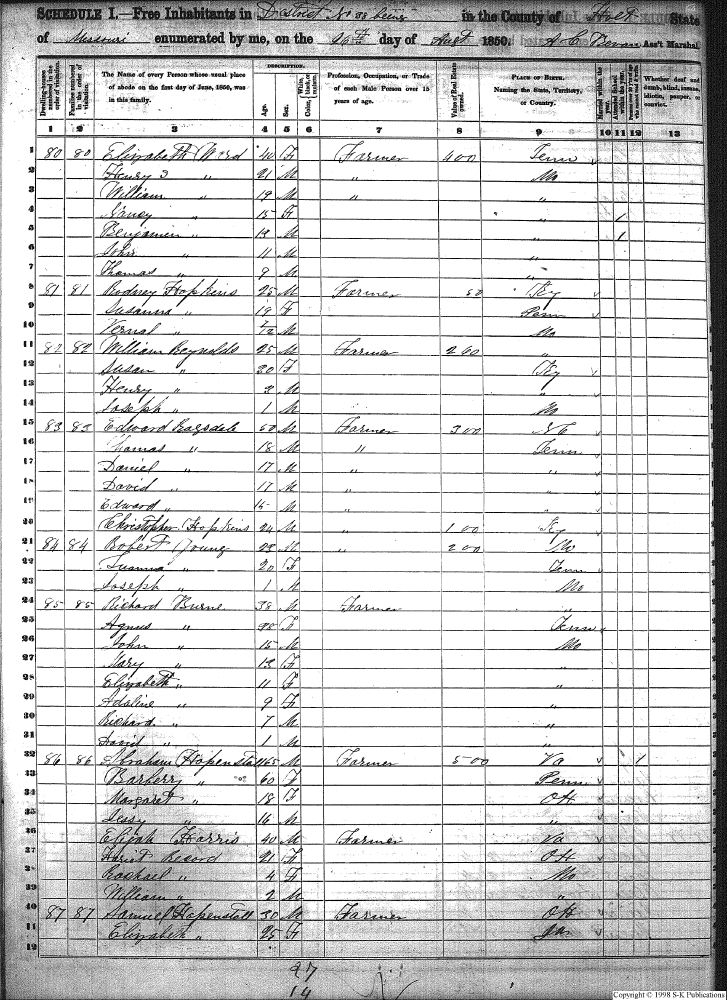 SCHEDULE I.—Free Inhabitants in District No 38 being in the County of Holt State
of Missouri enumerated by me, on the day of Augt 1850. A C Bevan Ass't Marshal
Dwelling-houses numbered in the order of visitation.
Families numbered in the order of visitation.
The Name of every Person whose usual place of abode on the first day of June, 1850, was in this family.
DESCRIPTION.
Age.
Sex.
White, Color, black, or mulatto.
Profession, Occupation, or Trade of each Male Person over 15 years of age.
Value of Real Estate owned.
PLACE OF BIRTH. Naming the State, Territory, or Country.
Married within the year.
Attended School within the year.
Whether deaf and dumb, blind, insane, idiotic, pauper, or convict.
1 2 3 4 5 6 7 8 9 10 11 12 13
1 80 80 Elizabeth Ward 40 F Farmer 400 Tenn
2 Henry " 21 M " Mo
3 William " 19 M " "
4 Nancy " 15 F " 1
5 Benjamin " 13 M " 1
6 John " 11 M "
7 Thomas " 9 M "
8 81 81 Rodney Hopkins 25 M Farmer 50 Ky
9 Susanna " 19 F Penn
10 Vernal " M Mo
11 82 82 William Reynolds 25 M Farmer 200 "
12 Susan " 20 F Ky
13 Henry " M "
14 Joseph " 1 M Mo
15 83 83 Edward Ragsdale 50 M Farmer 300 NC
16 Thomas " 18 M " Tenn
17 Daniel " 17 M " "
18 David " 17 M " "
19 Edward " 15 M " "
20 Christopher Hopkins 24 M " 100 Ky
21 84 84 Robert Young 23 M " 200 Mo
22 " 20 F Tenn
23 Joseph " 1 M Mo
24 85 85 Richard Burne 38 M Farmer "
25 Agnus " F Tenn
26 John " 15 M Mo
27 Mary " 13 F "
28 Elizabeth " 11 F "
29 Adaline " 9 F "
30 Richard " 7 M "
31 David " 1 M "
32 86 86 Abraham Hopenstall 65 M Farmer 500 Va 1
33 Barberry " 60 F Penn
34 Margaret " 18 F OH
35 Jessy " 16 M "
36 Elijah Harris 40 M Farmer Va
37 Hariet Record 21 F OH
38 Rachael " 4 F Mo
39 William " 2 M "
40 87 87 Samuel Hopenstall 30 M Farmer OH
41 Elizabeth " 25 F
42
27
14
Copyright © 1998 S-K Publications